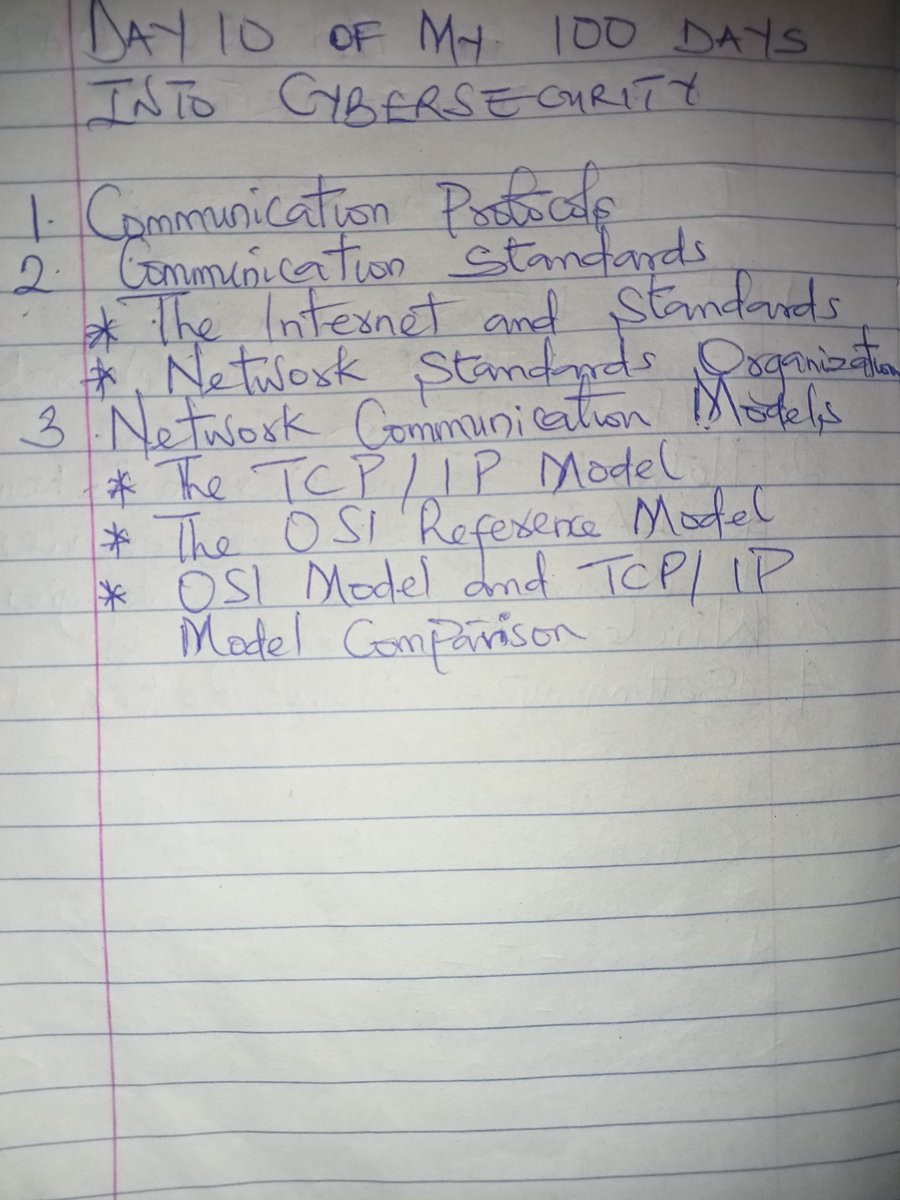 DAY 10 OF MY 100 DAYS
INTO CYBERSECURITY
1. Communication Protocols
2. Communication Standards
* The Internet and Standards
* Network Standards Organization
3. Network Communication Models
* The TCP/IP Model
* The OSI Reference Model
* OSI Model and TCP/IP
Model Comparison